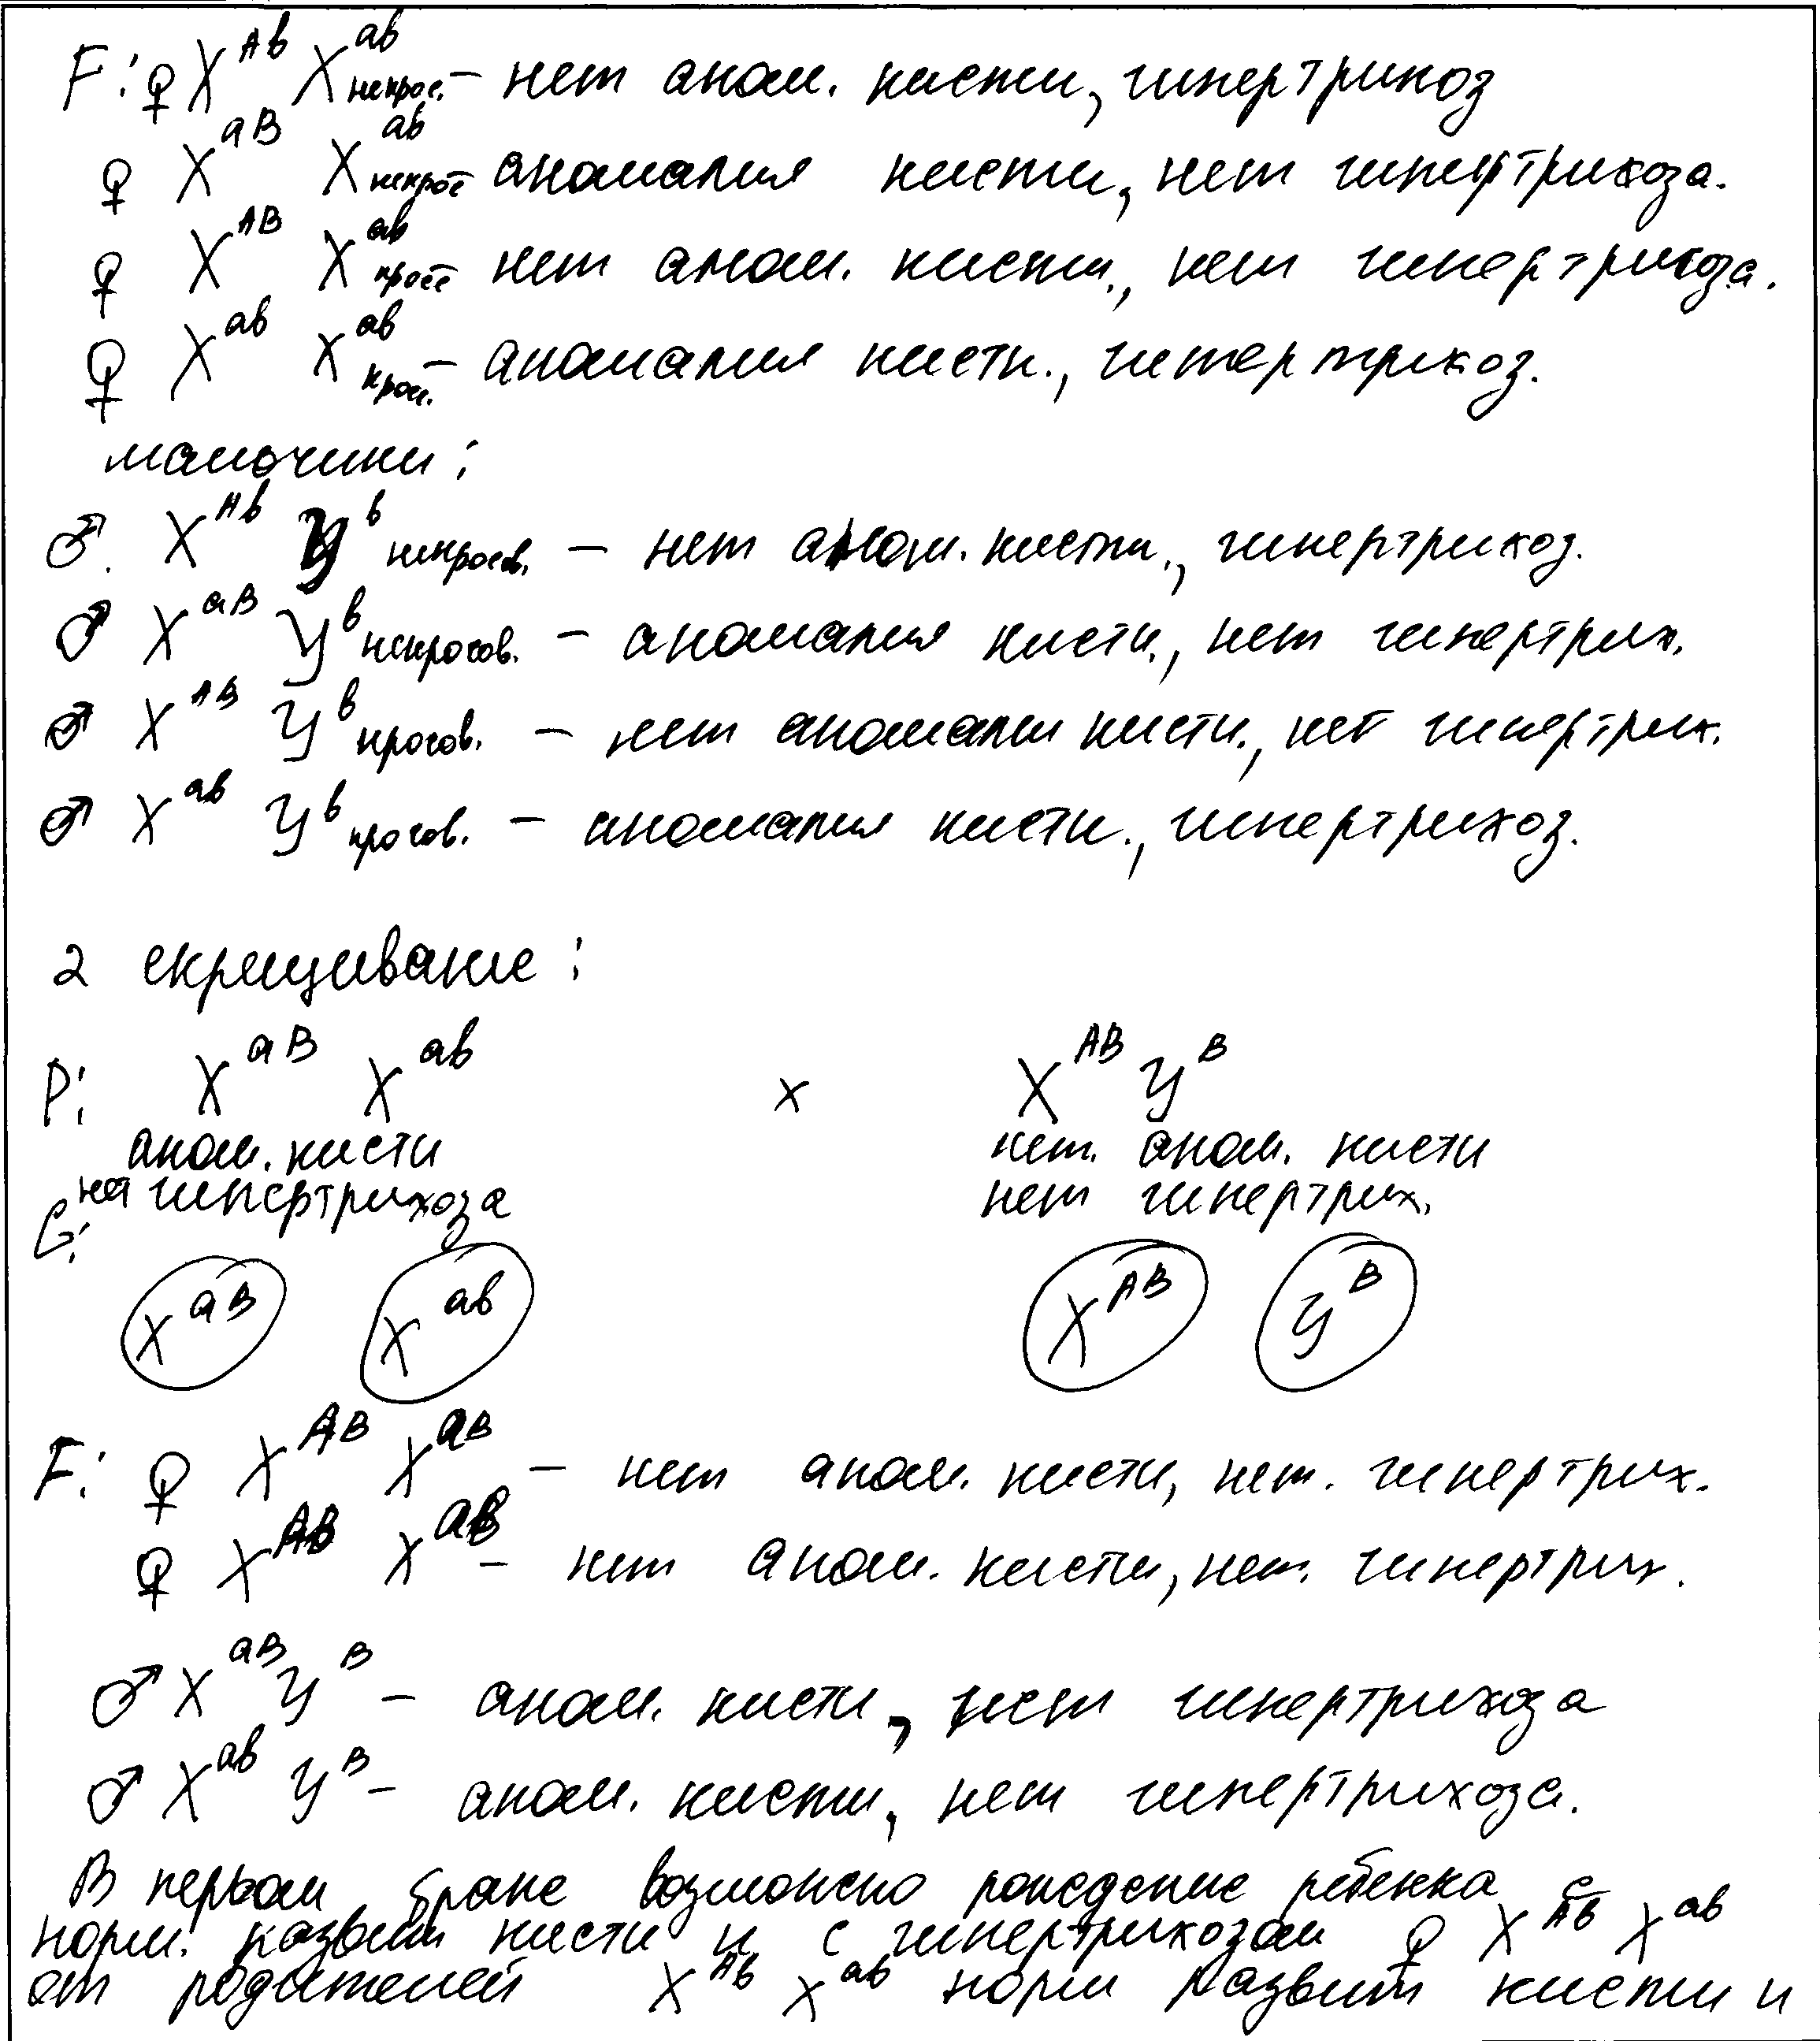 F: ♀ X^Ab X^ab некрос. – нет аном. кисти, гипертрихоз
♀ X^aB X^ab некрос аномалия кисти, нет гипертрихоза.
♀ X^AB X^ab кросс нет аном. кисти., нет гипертрихоза.
♀ X^ab X^ab крос. – аномалия кисти., гипертрихоз.
мальчики:
♂. X^Ab У^b некросов. – нет аном. кисти., гипертрихоз.
♂ X^aB У^b некросов. – аномалия кисти., нет гипертрих.
♂ X^AB У^b кросов. – нет аномалии кисти., нет гипертрих.
♂ X^ab У^b кросов. – аномалия кисти., гипертрихоз.
2 скрещивание:
P: X^aB X^ab х X^AB У^B
аном. кисти нет. аном. кисти
нет гипертрихоза нет гипертрих.
G:
X^aB X^ab X^AB У^B
F: ♀ X^AB X^aB – нет аном. кисти, нет. гипертрих.
♀ X^AB X^ab – нет аном. кисти, нет. гипертрих.
♂ X^aB У^B – аном. кисти, нет гипертрихоза
♂ X^ab У^B – аном. кисти, нет гипертрихоза.
В первом браке возможно рождение ребенка с
норм. развит кисти и с гипертрихозом ♀ X^Ab X^ab
от родителей X^Ab X^ab норм развит кисти и